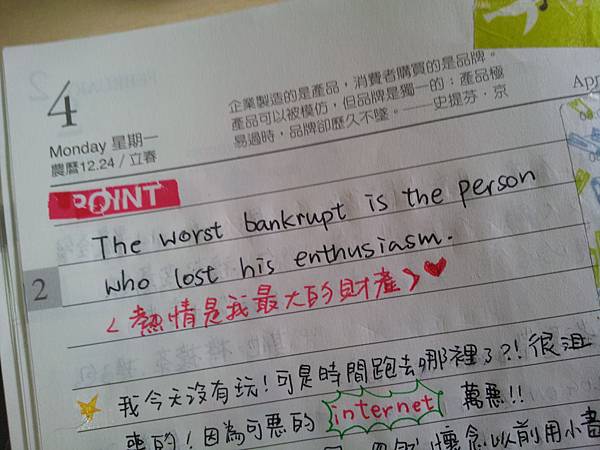 4
企業製造的是產品，消費者購買的是品牌。
產品可以被模仿，但品牌是獨一的；產品極
易過時，品牌卻歷久不墜。──史提芬．京
Apr
Monday 星期一
農曆12.24 / 立春
POINT
2
The worst bankrupt is the person
who lost his enthusiasm.
<熱情是我最大的財產>
我今天沒有玩！可是時間跑去哪裡了?! 很沮
喪的！因為可惡的 internet 萬惡!!
懷念以前用小